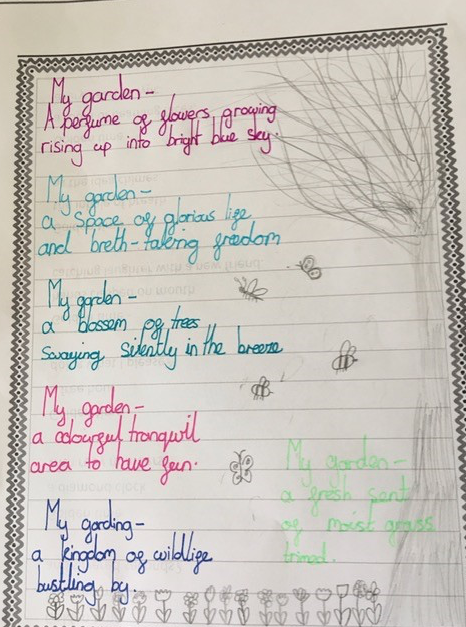 My garden-
A perfume of flowers growing
rising up into bright blue sky.
My garden-
a space of glorious life
and breth-taking freedom
My garden-
a blossem of trees
swaying silently in the breeze
My garden-
a colourful tranquil
area to have fun.
My garding-
a kingdom of wildlife
bustling by.
My garden-
a fresh sent
of moist grass
trimed.